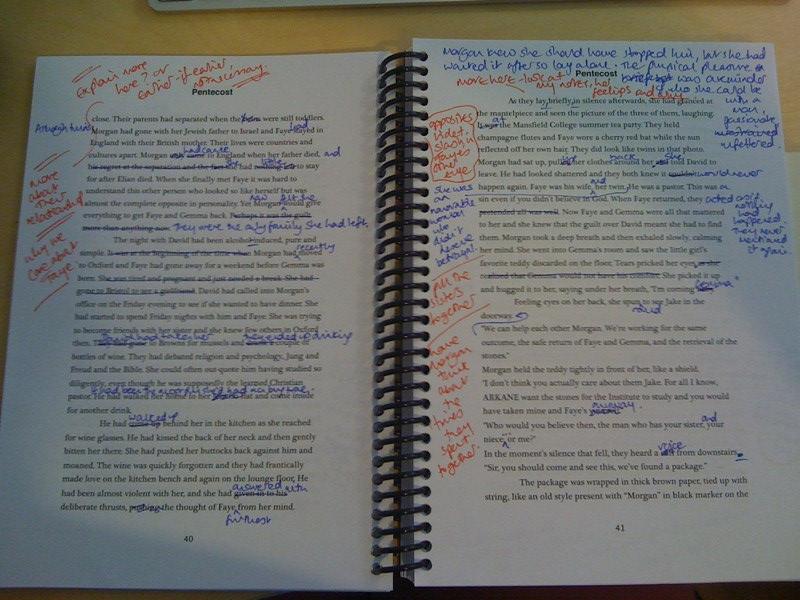 explain more
here? or
earlier if earlier
unnecessary.
Pentecost
close. Their parents had separated when the twins were still toddlers.
Although twins
Morgan had gone with her Jewish father to Israel and Faye had stayed in
England with their British mother. Their lives were countries and
cultures apart. Morgan had come to England when her father died, and
his regret at the separation and the fact of had nothing left to stay
for after Elian died. When she finally met Faye it was hard to
understand this other person who looked so like herself but was
almost the complete opposite in personality. Yet Morgan would give
everything to get Faye and Gemma back. Perhaps it was the guilt
more than anything now. They were the only family she had left.
more
about
their
relationship
why we
care about
Faye
The night with David had been alcohol induced, pure and
simple. It was at the beginning of the time when Morgan had recently moved
to Oxford and Faye had gone away for a weekend before Gemma was
born. She was tired and pregnant and just needed a break. She had
gone to Bristol to see a girlfriend. David had called into Morgan's
office on the Friday evening to see if she wanted to have dinner. She
had started to spend Friday nights with him and Faye. She was trying
to become friends with her sister and she knew few others in Oxford
then. They ended up drinking a couple of
bottles of wine. They had debated religion and psychology, Jung and
Freud and the Bible. She could often out-quote him having studied so
diligently, even though he was supposedly the learned Christian
pastor. He had walked her home to her flat and come inside
for another drink.
He had walked up behind her in the kitchen as she reached
for wine glasses. He had kissed the back of her neck and then gently
bitten her there. She had pushed her buttocks back against him and
moaned. The wine was quickly forgotten and they had frantically
made love on the kitchen bench and again on the lounge floor. He
had been almost violent with her, and she had answered with given in to his
deliberate thrusts, pushing the thought of Faye from her mind.
furthest
40
Morgan knew she should have stopped him, but she had
wanted it after so long alone. The physical pleasure
was a reminder
of who she could be
with a
man,
passionate,
unrestrained
unfettered.
more here - look at
my notes, her
feelings and why
Pentecost
As they lay briefly in silence afterwards, she had glanced at
the mantelpiece and seen the picture of the three of them, laughing.
It was at the Mansfield College summer tea party. They held
champagne flutes and Faye wore a cherry red bahat while the sun
reflected off her own hair. They did look like twins in that photo.
Morgan had sat up, pulled her clothes around her and she told David to
leave. He had looked shattered and they both knew it couldn't would never
happen again. Faye was his wife, and her twin. He was a pastor. This was a
sin even if you didn't believe in God. When Faye returned, they acted as if
pretended all was well. Now Faye and Gemma were all that mattered
nothing
had
happened.
They never
mentioned
it again.
to her and she knew that the guilt over David meant she had to find
them. Morgan took a deep breath and then exhaled slowly, calming
her mind. She went into Gemma's room and saw the little girl's
favorite teddy discarded on the floor. Tears pricked her eyes as she
realised that Gemma would not have his comfort. She picked it up
and hugged it to her, saying under her breath, "I'm coming Gemma"
opposites
she was
an
honourable
woman
who
didn't
deserve
betrayal
all the
sisters
together
have
Morgan
think
about
the
times
they
spent
together
Feeling eyes on her back, she spun to see Jake in the
doorway.
"We can help each other Morgan. We're working for the same
said
outcome, the safe return of Faye and Gemma, and the retrieval of the
stones."
Morgan held the teddy tightly in front of her, like a shield.
"I don't think you actually care about them Jake. For all I know,
ARKANE want the stones for the Institute to study and you would
have taken mine and Faye's anyway.
"Who would you believe then, the man who has your sister, and your
niece, or me?"
In the moment's silence that fell, they heard a voice from downstairs.
"Sir, you should come and see this, we've found a package."
The package was wrapped in thick brown paper, tied up with
string, like an old style present with "Morgan" in black marker on the
41